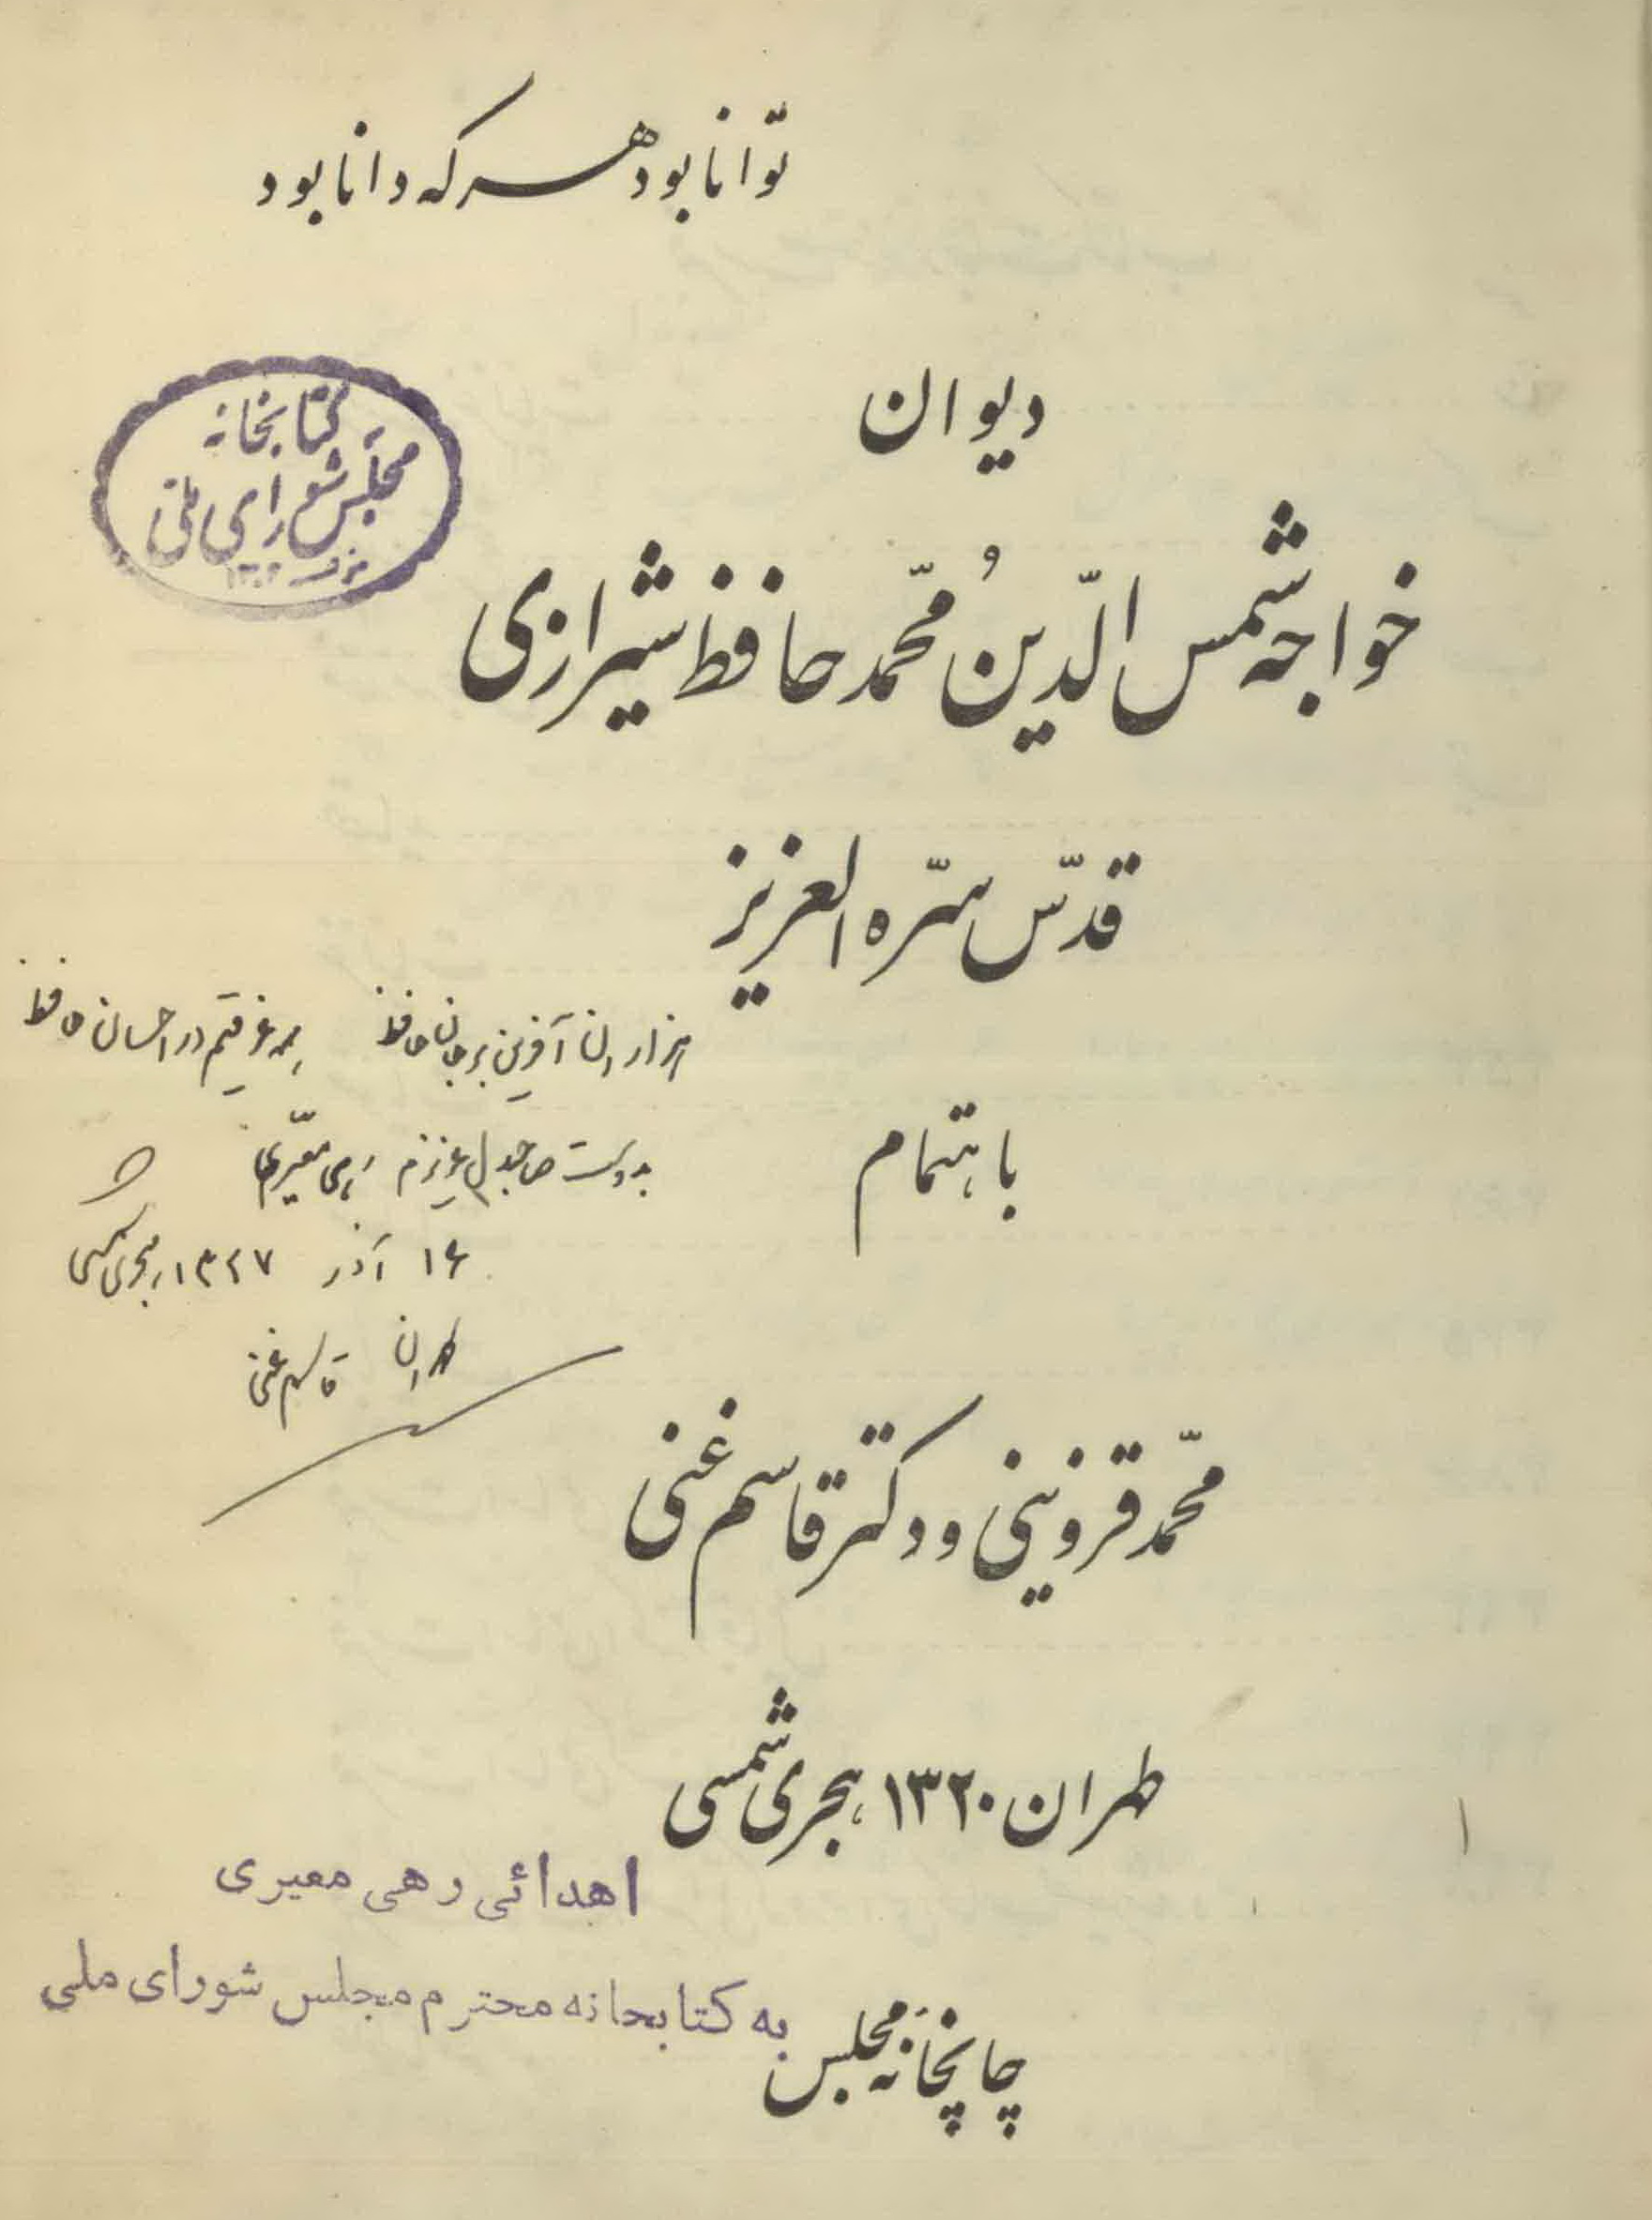 توانا بود هر که دانا بود
دیوان
کتابخانه
مجلس شورای ملی
خواجه شمس الدّین محمّد حافظ شیرازی
قدّس سرّه العزیز
هزاران آفرین بر جان حافظ همه غرقیم در احسان حافظ
باهتمام
بدوست صاحبدل عزیزم رهی معیّری
۱۶ آذر ۱۳۲۷ هجری شمسی
طهران قاسم غنی
محمّد قزوینی و دکتر قاسم غنی
طهران ۱۳۲۰ هجری شمسی
اهدائی رهی معیری
به کتابخانه محترم مجلس شورای ملی
چاپخانه مجلس